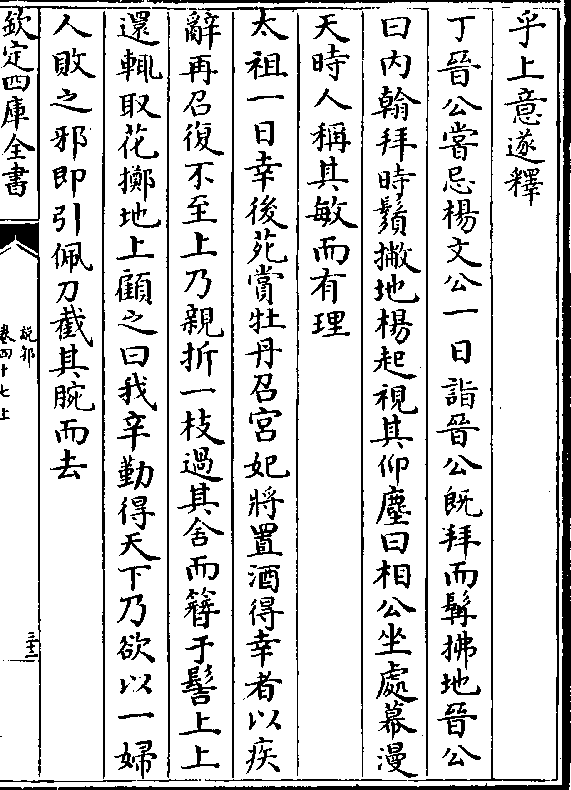 乎上意遂釋
丁晉公嘗忌楊文公一日詣晉公既拜而髯拂地晉公
曰内翰拜時鬚撇地楊起視其仰塵曰相公坐處幕漫
天時人稱其敏而有理
太祖一日幸後苑賞牡丹召宮妃將置酒得幸者以疾
辭再召復不至上乃親折一枝過其舍而簪于髻上上
還輒取花擲地上顧之曰我辛勤得天下乃欲以一婦
人敗之邪即引佩刀截其腕而去
欽定四庫全書
説郛
卷四十七上
三十二